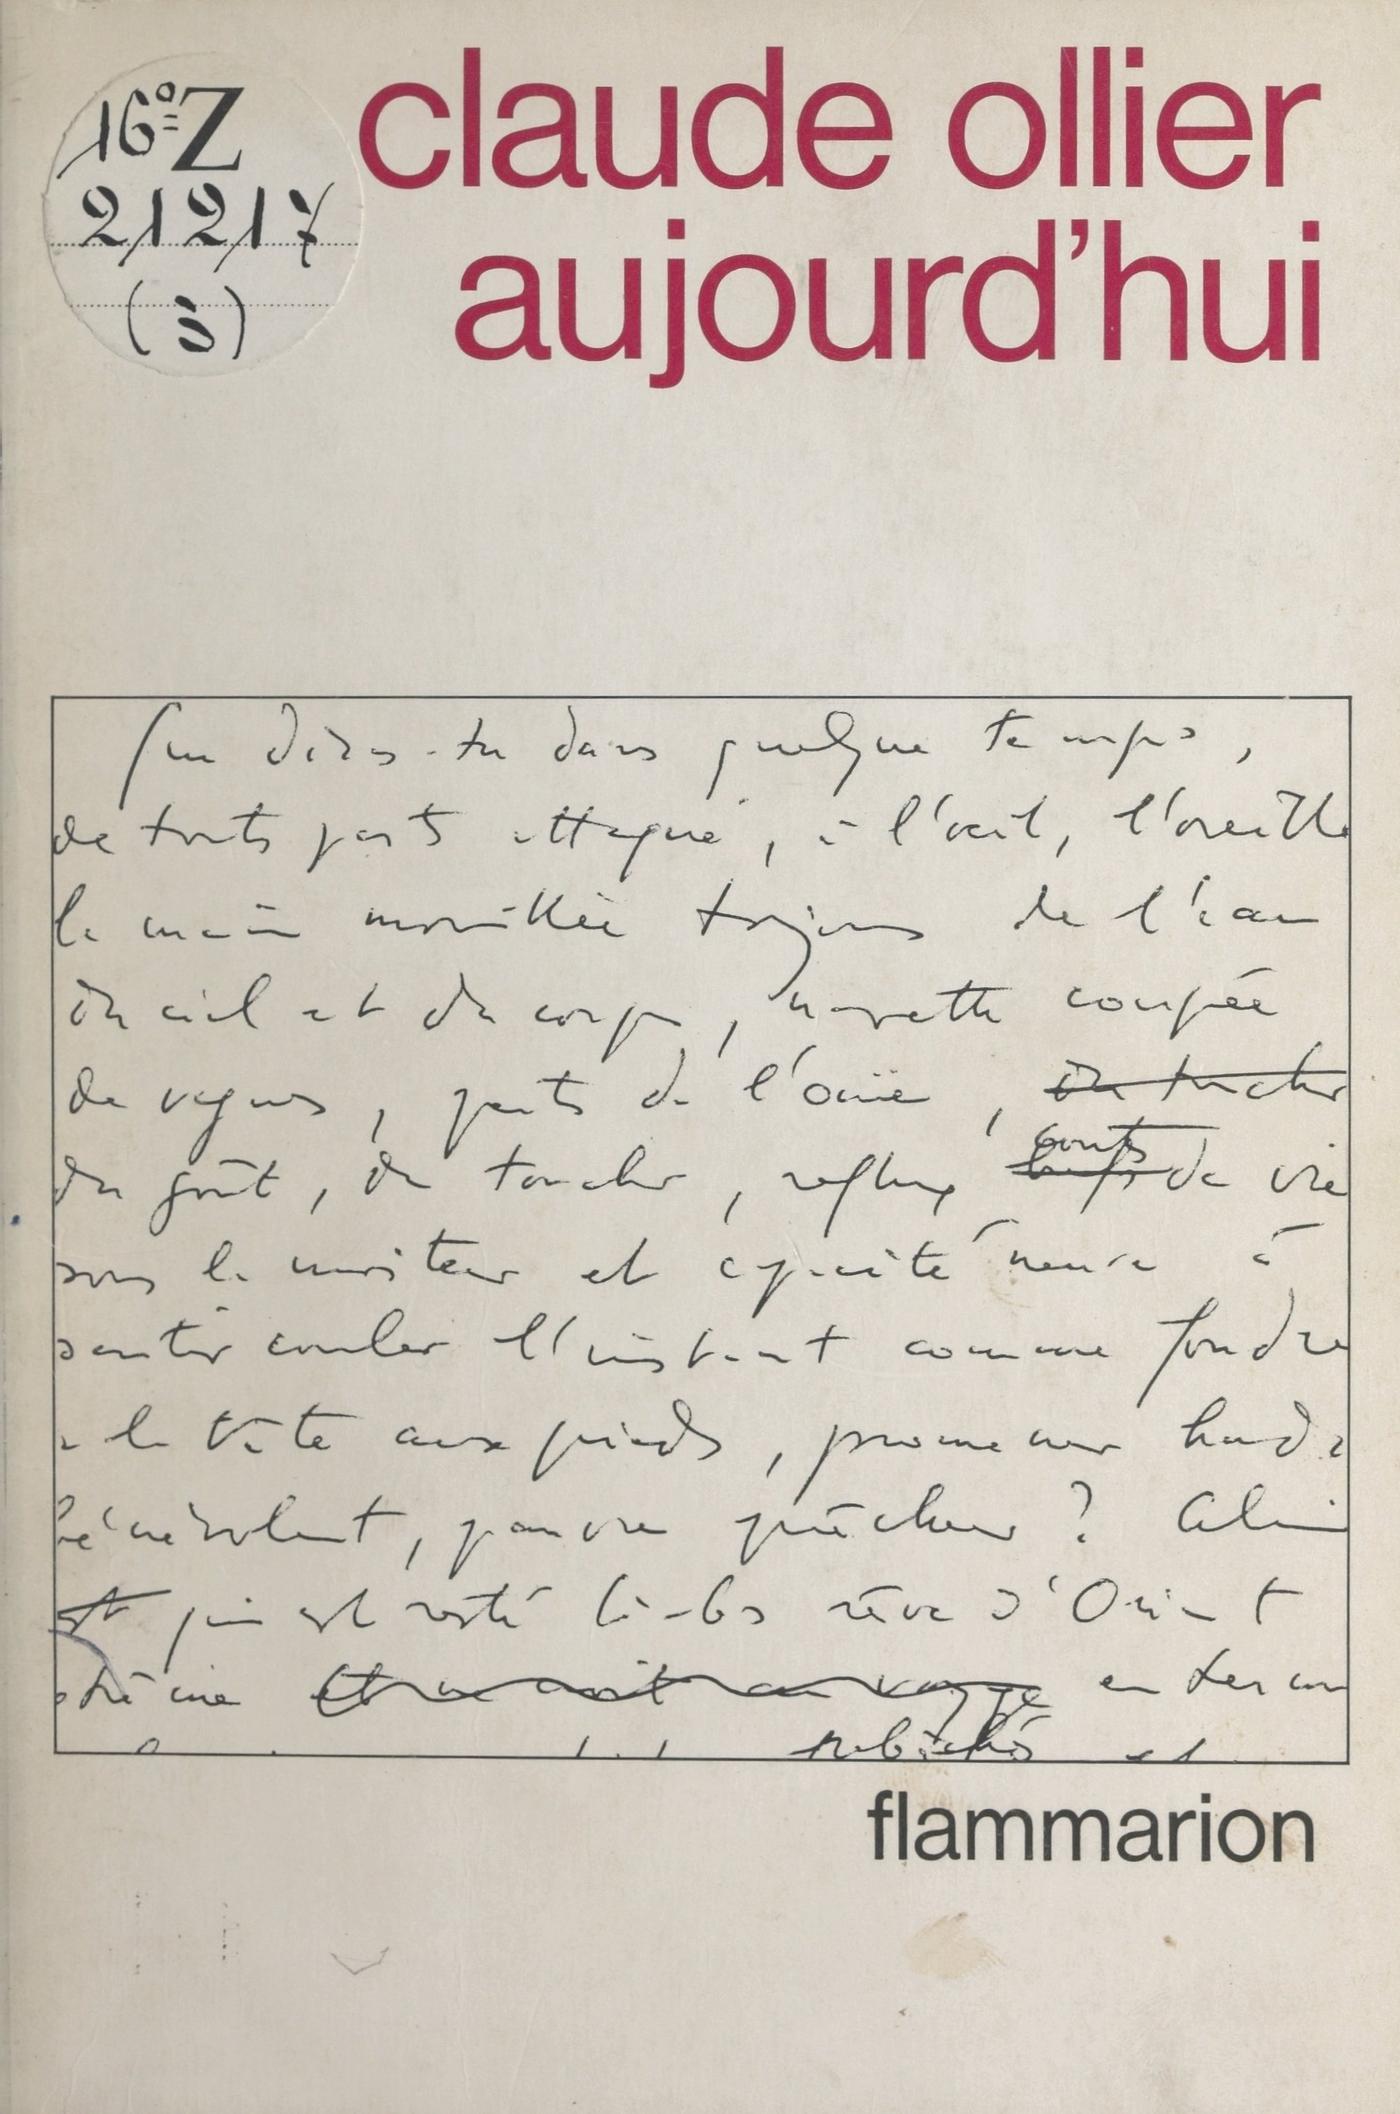 16º Z
21217
(3)
claude ollier
aujourd'hui
Que diras-tu dans quelque temps,
de toutes parts attaqué, à l'œil, l'oreille
la main mouillée toujours de l'eau
du ciel et du corps, navette coupée
de vagues, pertes de l'ouïe, du toucher
gouts
du goût, du toucher, reflux de vie
sous la moiteur et capacité neuve à
sentir couler l'instant comme foudre
la tête aux pieds, promeneur
bénévolent, pauvre pêcheur ?
est qui est resté là-bas rêve d'Orient
et un voyage en

flammarion